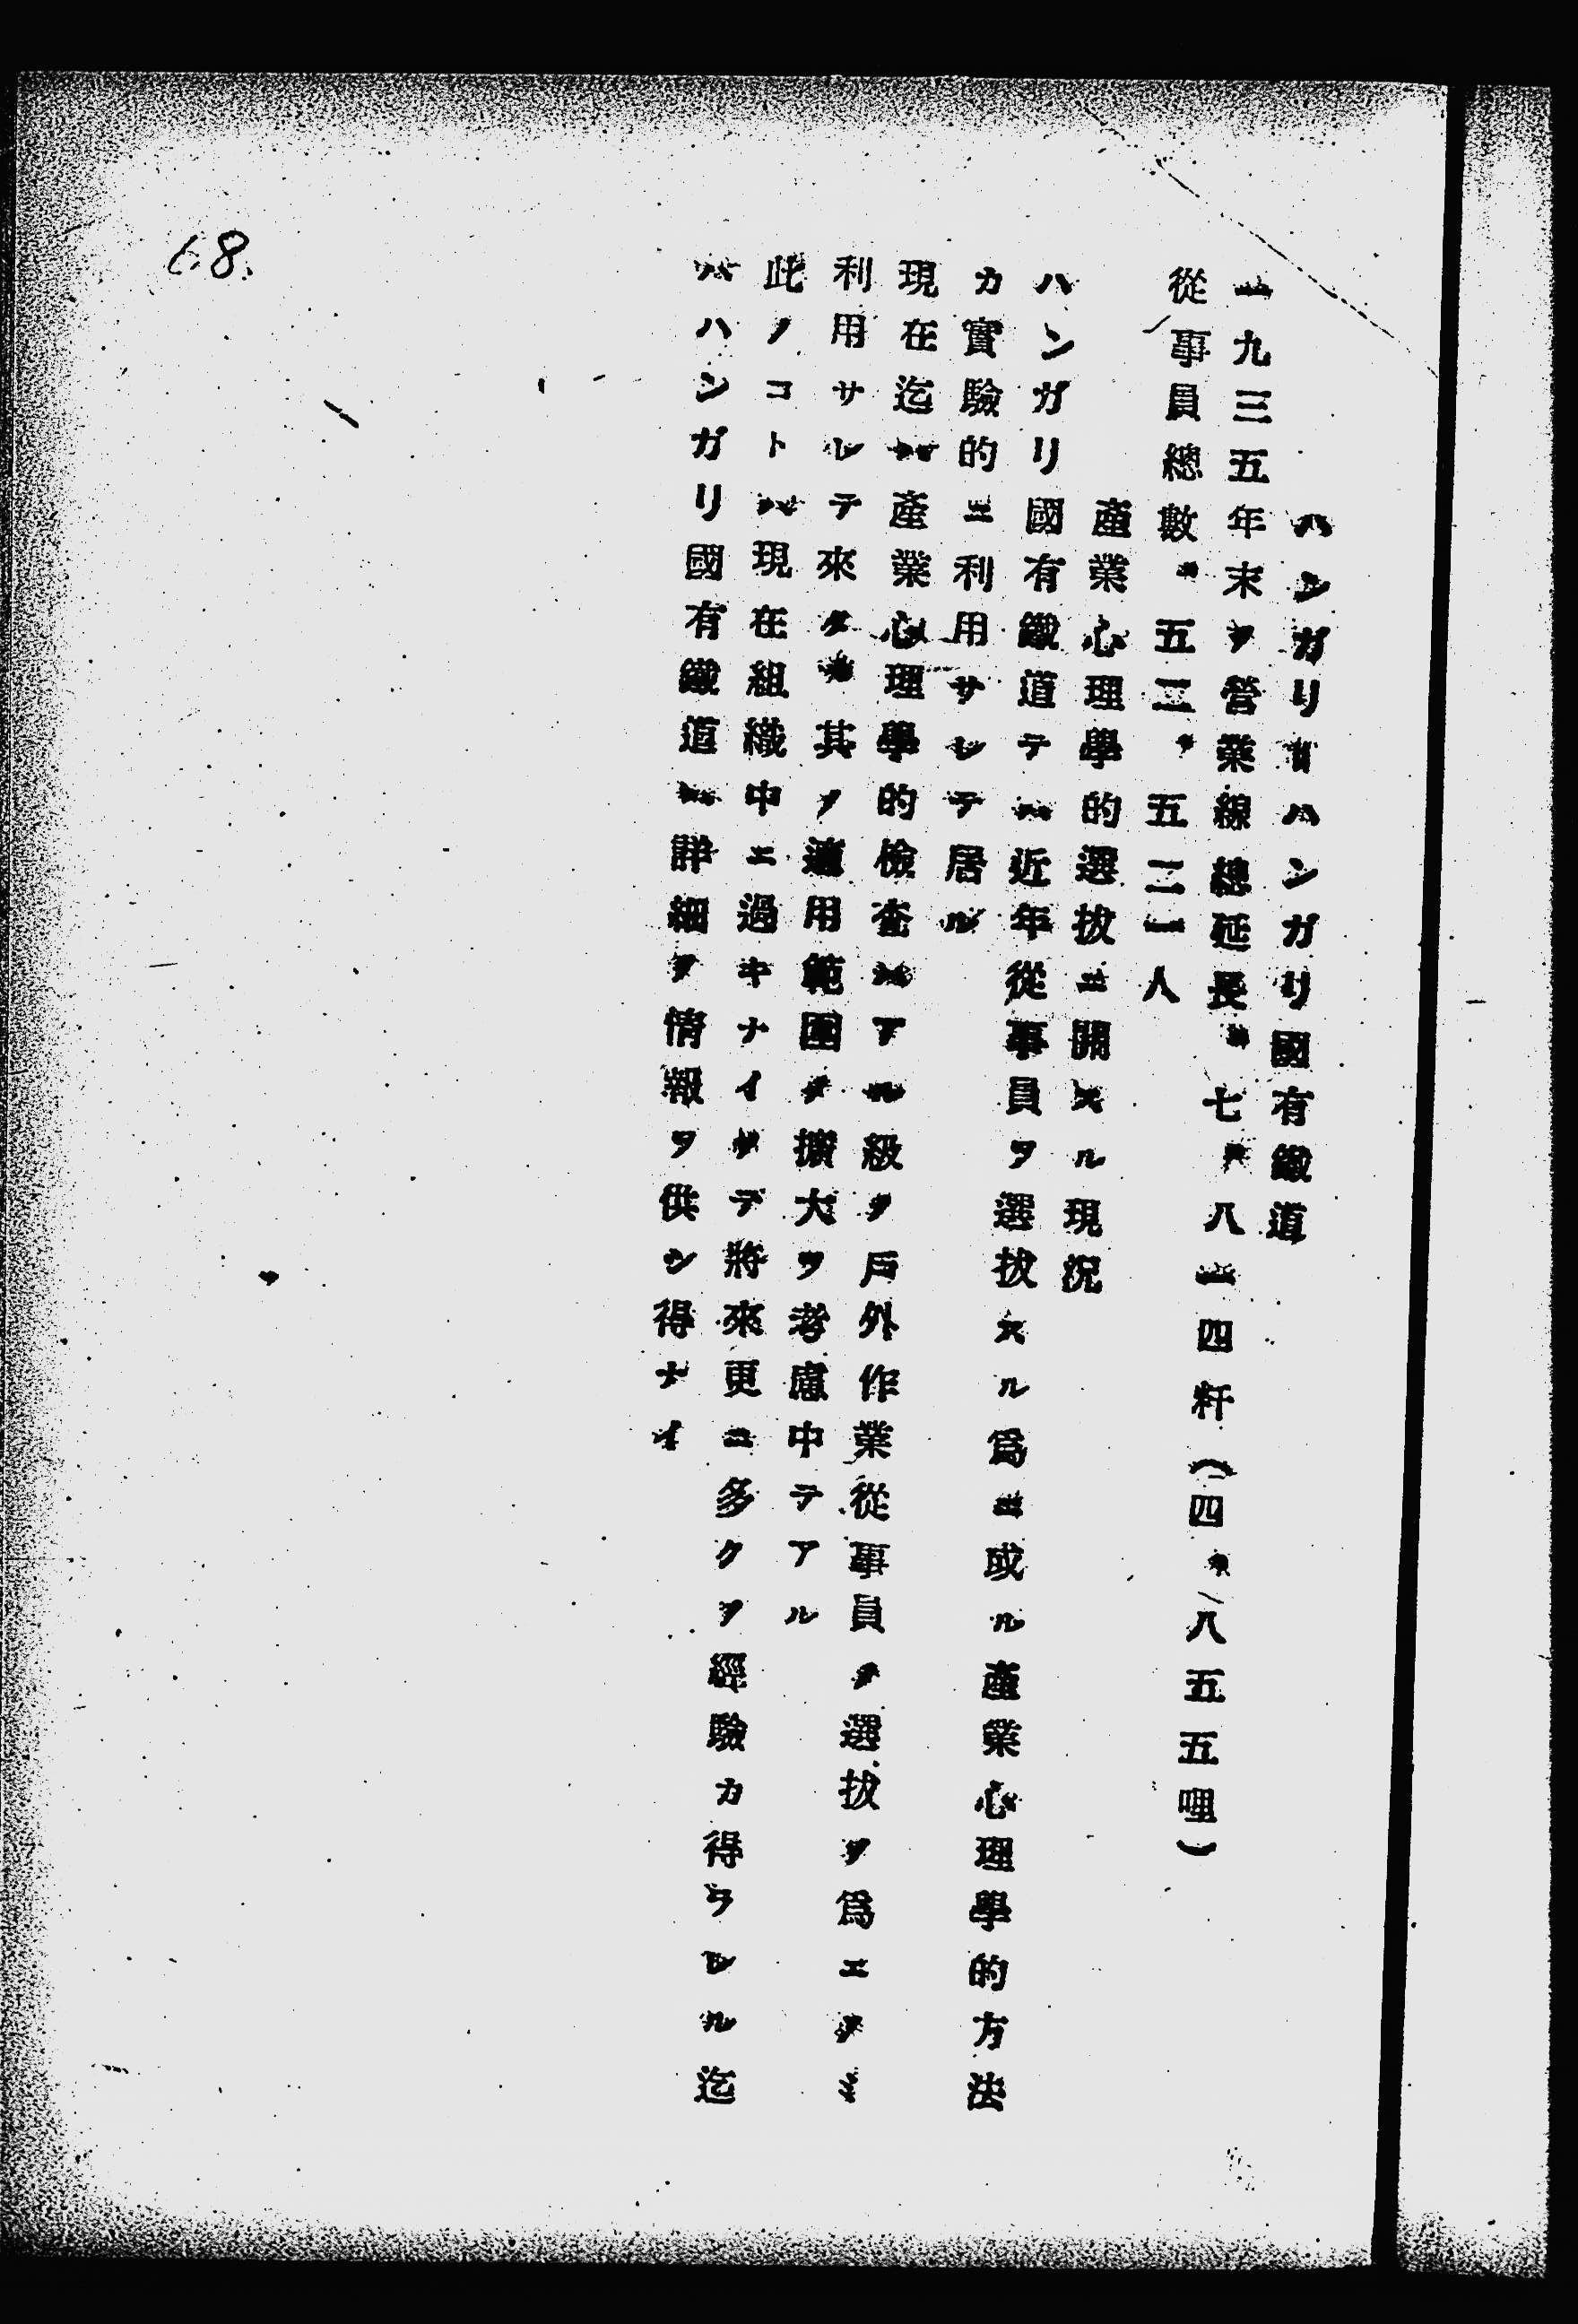 ハンガリーハンガリ國有鐵道
一九三五年末ノ營業線總延長 七、八一四粁(四、八五五哩)
從事員總數 五二、五二一人
產業心理學的選拔ニ關スル現況
ハンガリ國有鐵道テハ近年從事員ヲ選拔スル爲ニ或ル產業心理學的方法
カ實驗的ニ利用サレテ居ル
現在迄ハ產業心理學的檢査ハアル級ノ戶外作業從事員ノ選拔ノ爲ニノミ
利用サレテ來タ 其ノ適用範圍ノ擴大ヲ考慮中テアル
此ノコトハ現在組織中ニ過キナイノデ將來更ニ多クノ經驗カ得ラレル迄
ハハンガリ國有鐵道ハ詳細ノ情報ヲ供シ得ナイ
68.